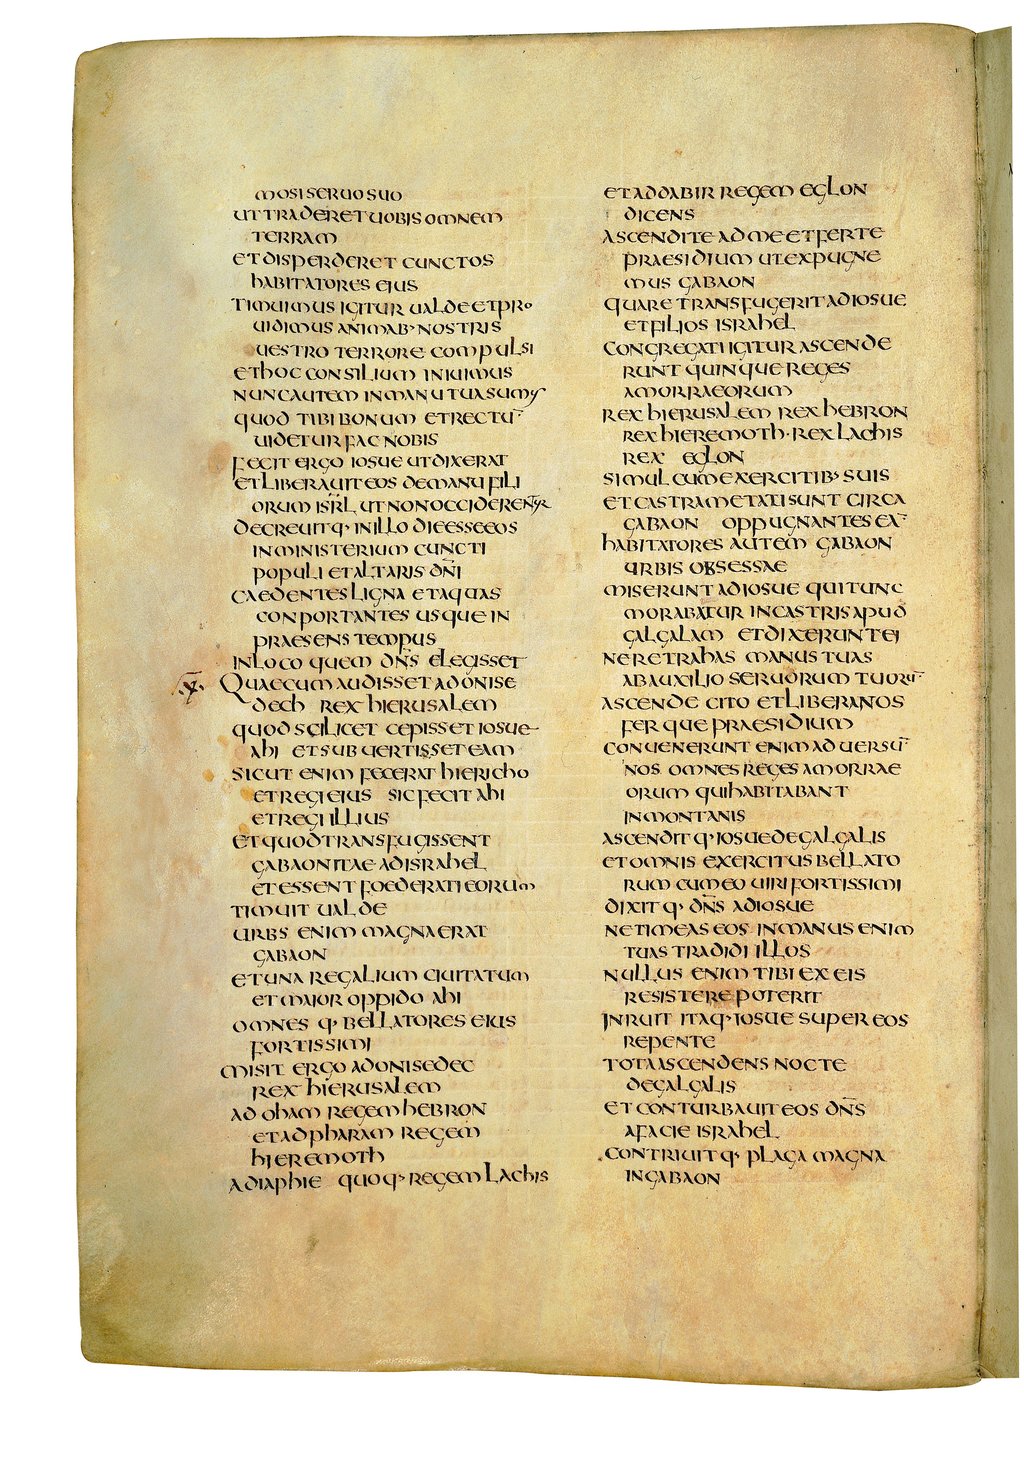 MOSI SERUO SUO
UT TRADERET UOBIS OMNEM
TERRAM
ET DISPERDERET CUNCTOS
HABITATORES EIUS
TIMUIMUS IGITUR UALDE ET PRO
UIDIMUS ANIMAB· NOSTRIS
UESTRO TERRORE COMPULSI
ET HOC CONSILIUM INIUIMUS
NUNC AUTEM IN MANU TUA SUMUS
QUOD TIBI BONUM ET RECTU̅
UIDETUR FAC NOBIS
FECIT ERGO IOSUE UT DIXERAT
ET LIBERAUIT EOS DE MANU FILI
ORUM ISR̅L UT NON OCCIDERENTUR
DECREUITQ· IN ILLO DIE ESSE EOS
IN MINISTERIUM CUNCTI
POPULI ET ALTARIS DN̅I
CAEDENTES LIGNA ET AQUAS
CONPORTANTES USQUE IN
PRAESENS TEMPUS
IN LOCO QUEM DN̅S ELEGISSET
X̅ QUAE CUM AUDISSET ADONISE
DECH REX HIERUSALEM
QUOD SCILICET CEPISSET IOSUE
AHI ET SUBUERTISSET EAM
SICUT ENIM FECERAT HIERICHO
ET REGI EIUS SIC FECIT AHI
ET REGI ILLIUS
ET QUOD TRANSFUGISSENT
GABAONITAE AD ISRAHEL
ET ESSENT FOEDERATI EORUM
TIMUIT UALDE
URBS ENIM MAGNA ERAT
GABAON
ET UNA REGALIUM CIUITATUM
ET MAIOR OPPIDO AHI
OMNESQ· BELLATORES EIUS
FORTISSIMI
MISIT ERGO ADONISEDEC
REX HIERUSALEM
AD OHAM REGEM HEBRON
ET AD PHARAM REGEM
HIEREMOTH
AD IAPHIE QUOQ· REGEM LACHIS
ET AD DABIR REGEM EGLON
DICENS
ASCENDITE AD ME ET FERTE
PRAESIDIUM UT EXPUGNE
MUS GABAON
QUARE TRANSFUGERIT AD IOSUE
ET FILIOS ISRAHEL
CONGREGATI IGITUR ASCENDE
RUNT QUINQUE REGES
AMORRAEORUM
REX HIERUSALEM REX HEBRON
REX HIEREMOTH· REX LACHIS
REX EGLON
SIMUL CUM EXERCITIB· SUIS
ET CASTRAMETATI SUNT CIRCA
GABAON OPPUGNANTES EA̅
HABITATORES AUTEM GABAON
URBIS OBSESSAE
MISERUNT AD IOSUE QUI TUNC
MORABATUR IN CASTRIS APUD
GALGALAM ET DIXERUNT EI
NE RETRAHAS MANUS TUAS
AB AUXILIO SERUORUM TUORU̅
ASCENDE CITO ET LIBERA NOS
FERQUE PRAESIDIUM
CONUENERUNT ENIM ADUERSU̅
NOS OMNES REGES AMORRAE
ORUM QUI HABITABANT
IN MONTANIS
ASCENDITQ· IOSUE DE GALGALIS
ET OMNIS EXERCITUS BELLATO
RUM CUM EO UIRI FORTISSIMI
DIXITQ· DN̅S AD IOSUE
NE TIMEAS EOS IN MANUS ENIM
TUAS TRADIDI ILLOS
NULLUS ENIM TIBI EX EIS
RESISTERE POTERIT
INRUIT ITAQ· IOSUE SUPER EOS
REPENTE
TOTA ASCENDENS NOCTE
DE GALGALIS
ET CONTURBAUIT EOS DN̅S
A FACIE ISRAHEL
CONTRIUITQ· PLAGA MAGNA
IN GABAON